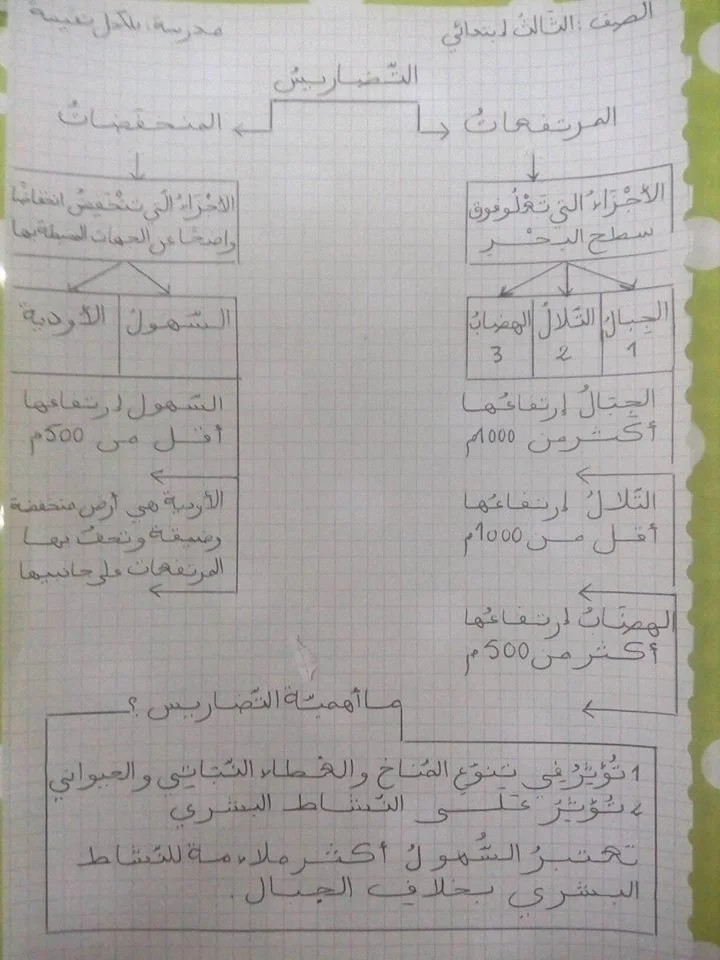 الصف : الثالث ابتدائي
مدرسة :
التّضاريسُ
المرتفعاتُ
المنخفضاتُ
الأجْزَاءُ التي تَعْلُو فوق
سطح البحْرِ
الأجْزاءُ الّتي تنْخَفِضُ انخفاضًا
واضحًا عن الجهات المحيطة بها
الجِبالُ
1
التّلالُ
2
الهضابُ
3
السّهولُ
الأودية
الجِبَالُ إرتفاعُها
أكثر من 1000م
التّلالُ إرتفاعُها
أقل من 1000م
الهضَابُ إرتفاعُها
أكثر من 500م
السّهول إرتفاعها
أقل من 500م
الأودية هي أرض منخفضة
وضيقة وتحفُ بها
المرتفعات على جانبيها
ما أهميّة التّضاريس ؟
1 تُؤثِّرُ في تنوّعِ المُناخ والغطاء النّباتي والحيواني
2 تُؤثِّرُ على النّشاط البشري
تعتبرُ السُّهولُ أكثر ملاءمة للنّشاط
البشري بخلاف الجبال.